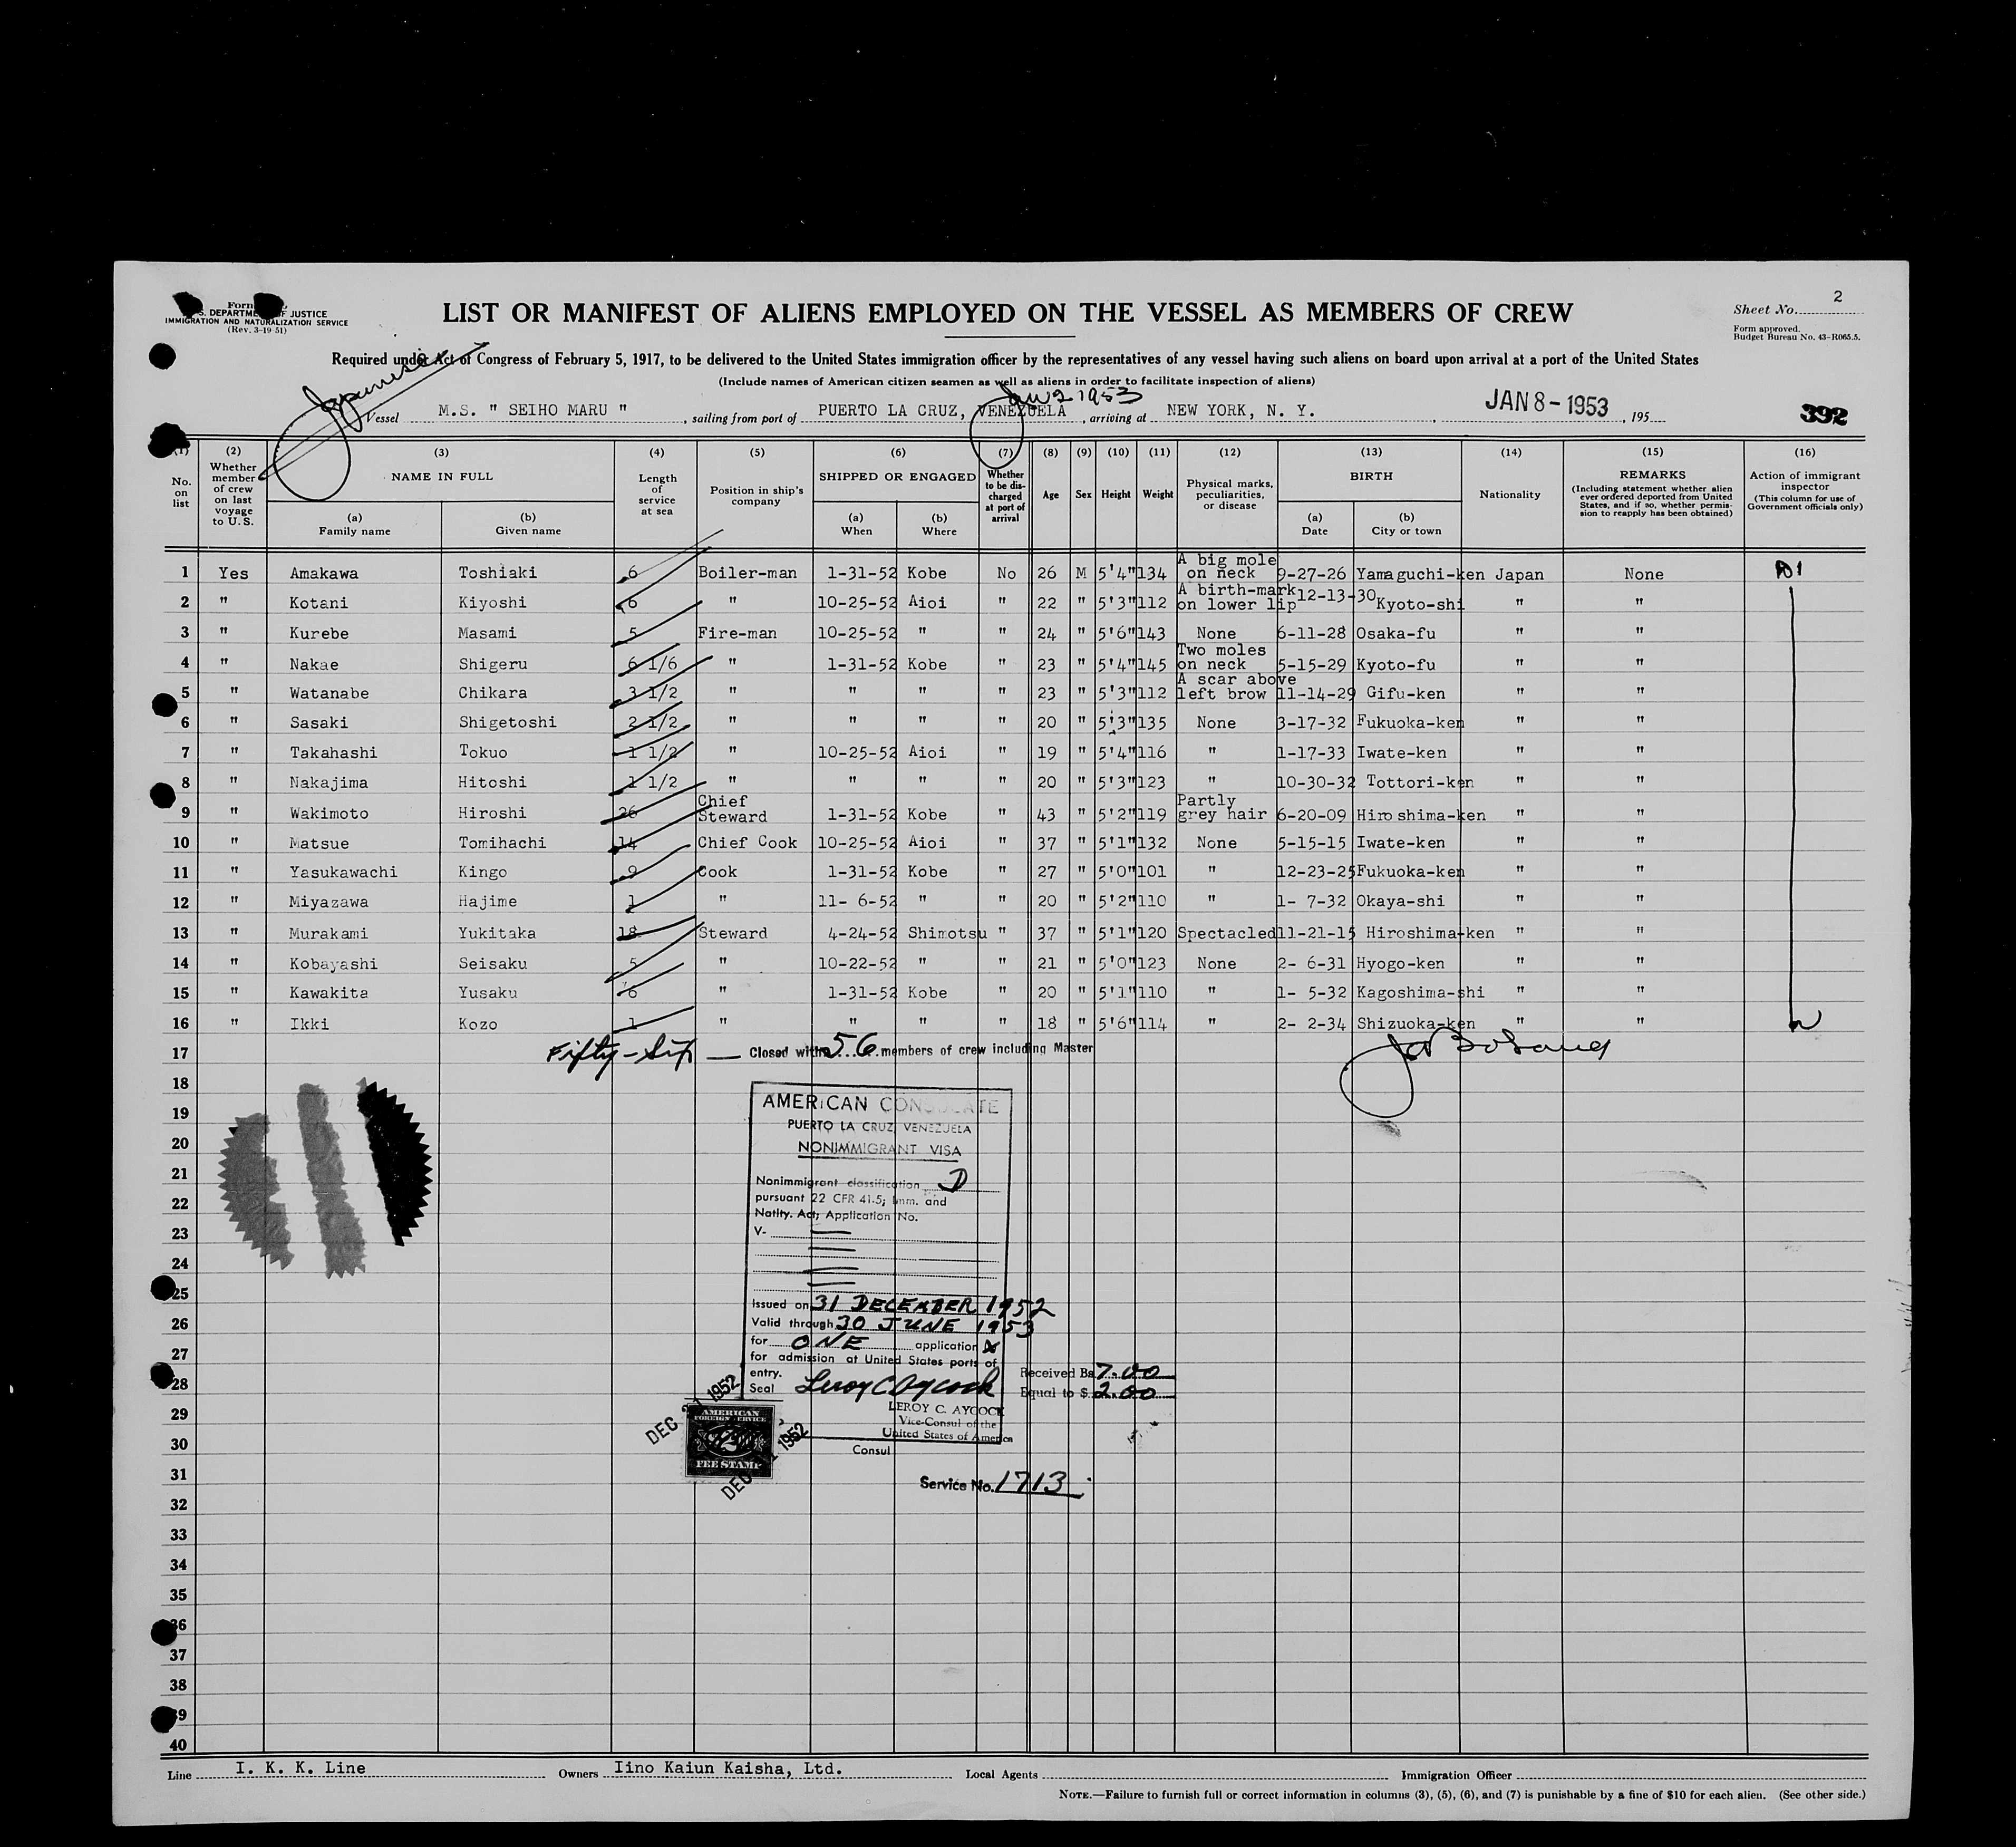 2
LIST OR MANIFEST OF ALIENS EMPLOYED ON THE VESSEL AS MEMBERS OF CREW
Sheet No.
Form
DEPARTMENT OF JUSTICE
IMMIGRATION AND NATURALIZATION SERVICE
(Rev. 3-19 51)
Form approved.
Budget Bureau No. 43-R065.5.
Required under Act of Congress of February 5, 1917, to be delivered to the United States immigration officer by the representatives of any vessel having such aliens on board upon arrival at a port of the United States
(Include names of American citizen seamen as well as aliens in order to facilitate inspection of aliens)
Japanese
Jan 2 1953
Vessel M.S. " SEIHO MARU " , sailing from port of PUERTO LA CRUZ, VENEZUELA , arriving at NEW YORK, N. Y. , JAN 8 - 1953 , 195
392
(1) No. on list
(2) Whether member of crew on last voyage to U. S.
(3) NAME IN FULL
(a) Family name
(b) Given name
(4) Length of service at sea
(5) Position in ship's company
(6) SHIPPED OR ENGAGED
(a) When
(b) Where
(7) Whether to be discharged at port of arrival
(8) Age
(9) Sex
(10) Height
(11) Weight
(12) Physical marks, peculiarities, or disease
(13) BIRTH
(a) Date
(b) City or town
(14) Nationality
(15) REMARKS
(Including statement whether alien ever ordered deported from United States, and if so, whether permission to reapply has been obtained)
(16) Action of immigrant inspector
(This column for use of Government officials only)
1 Yes Amakawa Toshiaki 6 Boiler-man 1-31-52 Kobe No 26 M 5'4" 134 A big mole on neck 9-27-26 Yamaguchi-ken Japan None
2 " Kotani Kiyoshi 6 " 10-25-52 Aioi " 22 " 5'3" 112 A birth-mark on lower lip 12-13-30 Kyoto-shi " "
3 " Kurebe Masami 5 Fire-man 10-25-52 " " 24 " 5'6" 143 None 6-11-28 Osaka-fu " "
4 " Nakae Shigeru 6 1/6 " 1-31-52 Kobe " 23 " 5'4" 145 Two moles on neck 5-15-29 Kyoto-fu " "
5 " Watanabe Chikara 3 1/2 " " " " 23 " 5'3" 112 A scar above left brow 11-14-29 Gifu-ken " "
6 " Sasaki Shigetoshi 2 1/2 " " " " 20 " 5'3" 135 None 3-17-32 Fukuoka-ken " "
7 " Takahashi Tokuo 1 1/2 " 10-25-52 Aioi " 19 " 5'4" 116 " 1-17-33 Iwate-ken " "
8 " Nakajima Hitoshi 1 1/2 " " " " 20 " 5'3" 123 " 10-30-32 Tottori-ken " "
9 " Wakimoto Hiroshi 26 Chief Steward 1-31-52 Kobe " 43 " 5'2" 119 Partly grey hair 6-20-09 Hiroshima-ken " "
10 " Matsue Tomihachi 14 Chief Cook 10-25-52 Aioi " 37 " 5'1" 132 None 5-15-15 Iwate-ken " "
11 " Yasukawachi Kingo 9 Cook 1-31-52 Kobe " 27 " 5'0" 101 " 12-23-25 Fukuoka-ken " "
12 " Miyazawa Hajime 1 " 11- 6-52 " " 20 " 5'2" 110 " 1- 7-32 Okaya-shi " "
13 " Murakami Yukitaka 18 Steward 4-24-52 Shimotsu " 37 " 5'1" 120 Spectacled 11-21-15 Hiroshima-ken " "
14 " Kobayashi Seisaku 5 " 10-22-52 " " 21 " 5'0" 123 None 2- 6-31 Hyogo-ken " "
15 " Kawakita Yusaku 6 " 1-31-52 Kobe " 20 " 5'1" 110 " 1- 5-32 Kagoshima-shi " "
16 " Ikki Kozo 1 " " " " 18 " 5'6" 114 " 2- 2-34 Shizuoka-ken " "
17 Fifty-Six — Closed with 56 members of crew including Master
18
19
20
21
22
23
24
25
26
27
28
29
30
31
32
33
34
35
36
37
38
39
40
AMERICAN CONSULATE
PUERTO LA CRUZ, VENEZUELA
NONIMMIGRANT VISA
Nonimmigrant classification D
pursuant 22 CFR 41.5; Imm. and
Natity. Act; Application No.
V-
Issued on 31 DECEMBER 1952
Valid through 30 JUNE 1953
for ONE application
for admission at United States ports of
entry.
Seal Leroy C Aycock
LEROY C. AYCOCK
Vice-Consul of the
United States of America
Consul
Received Bs 7.00
Equal to $ 2.00
DEC 31 1952
AMERICAN
FOREIGN SERVICE
FEE STAMP
DEC 31 1952
Service No. 1713
Line I. K. K. Line Owners Iino Kaiun Kaisha, Ltd. Local Agents Immigration Officer
NOTE.—Failure to furnish full or correct information in columns (3), (5), (6), and (7) is punishable by a fine of $10 for each alien. (See other side.)